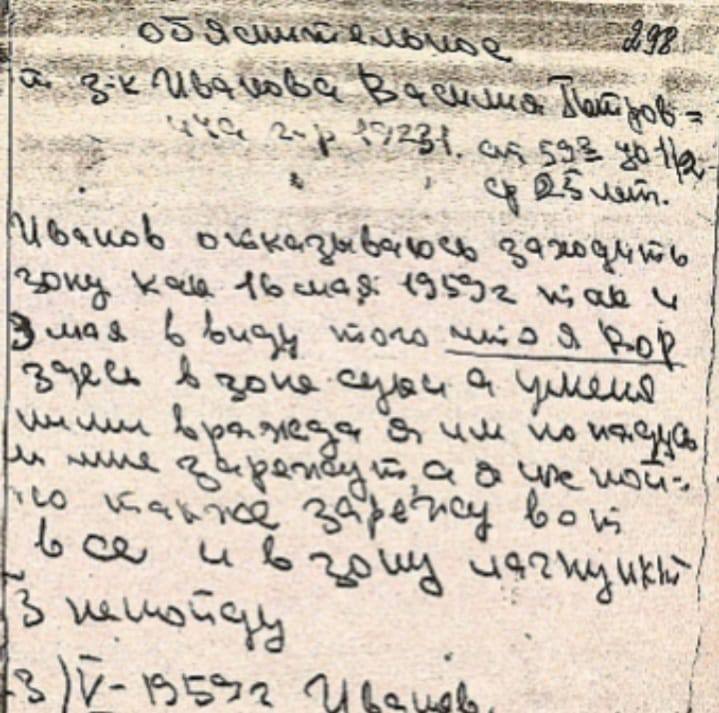 объяснительное 298
от з-к Иванова Василия Петров=
ича г-р 1923 г. ст 59-3 ук 1/2
ср 25 лет.
Иванов отказываюсь заходить
зону как 16 мая 1959 г так и
3 мая в виду того что я вор
здесь в зоне суки а у меня
ними вражда я им попадусь
и мне зарежут, а я их пой-
также зарежу вот
все и в зону лагпункт
3 непойду
3/V-1959 г Иванов.